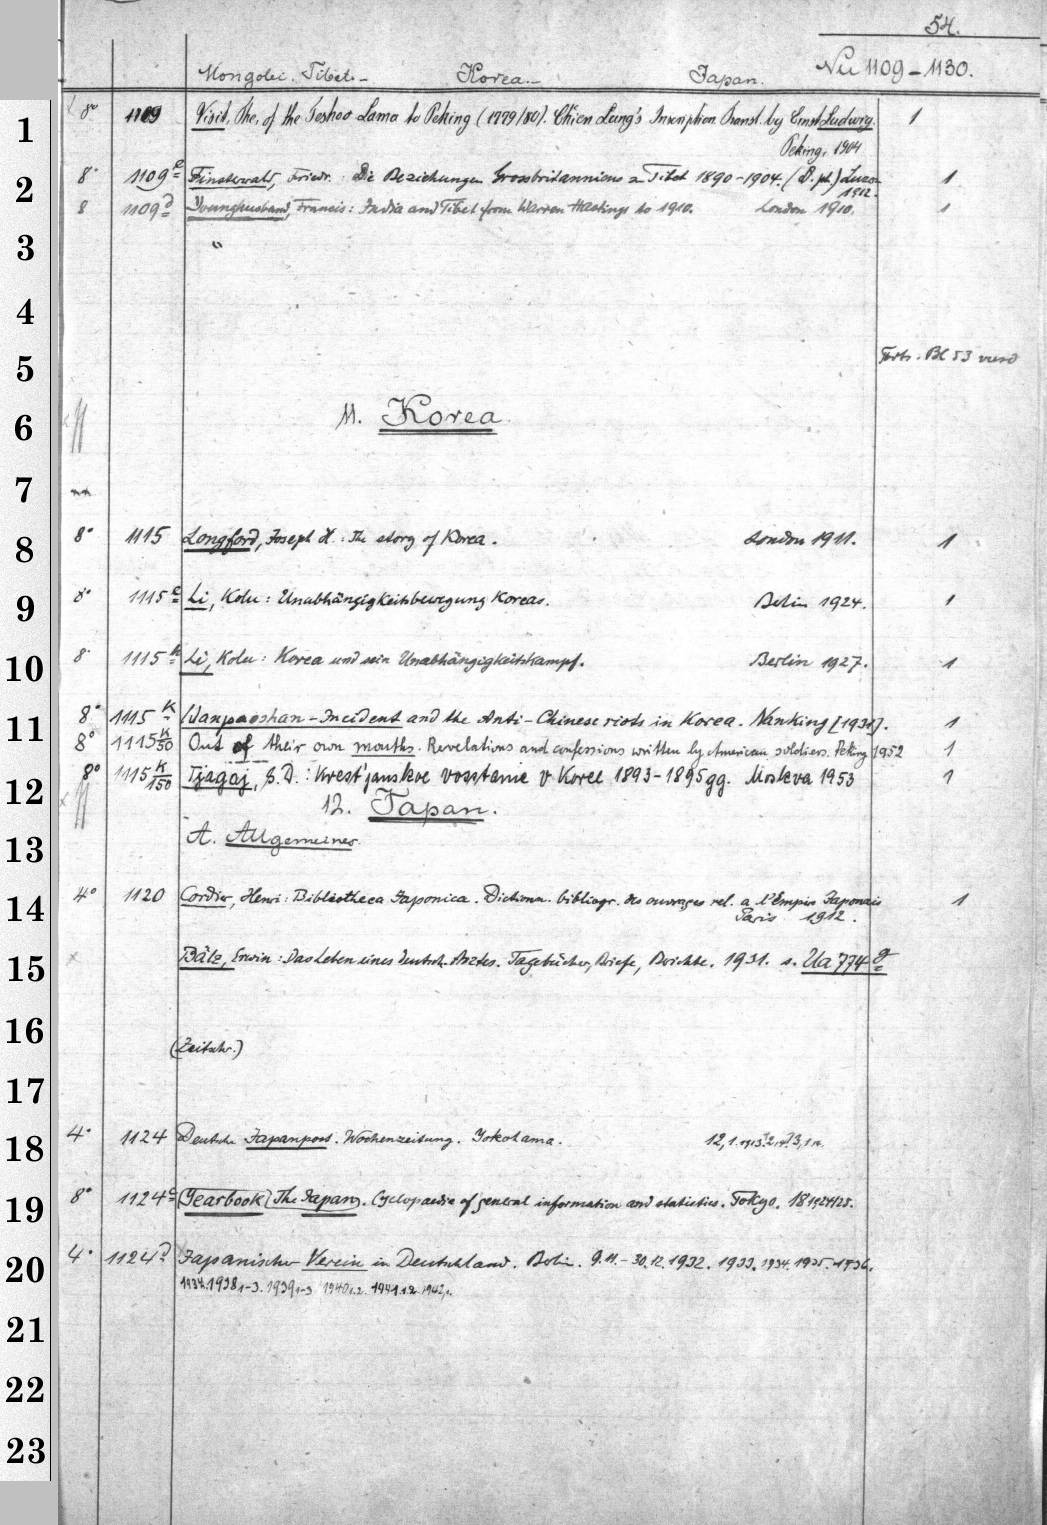 54.
Mongolei. Tibet. Korea. Japan. Nu 1109-1130.
1 8° 1109 Visit, The, of the Teshoo Lama to Peking (1779/80). Chien Lung's Inscription Transl. by Ernst Ludwig. 1
Peking, 1904
2 8° 1109 c Finsterwald, Friedr.: Die Beziehungen Grossbritanniens z. Tibet 1890-1904. (D. ph.) Luzern 1
1912.
8 1109 d Younghusband, Francis: India and Tibet from Warren Hastings to 1910. London 1910. 1
3 "
4
5 Forts. Bl 53 verso
6 11. Korea.
7
8 8° 1115 Longford, Joseph H.: The story of Korea. London 1911. 1
9 8° 1115 c Li, Kolu: Unabhängigkeitsbewegung Koreas. Berlin 1924. 1
10 8° 1115 h Li, Kolu: Korea und sein Unabhängigkeitskampf. Berlin 1927. 1
11 8° 1115 k Wanpaoshan-Incident and the Anti-Chinese riots in Korea. Nanking [1931]. 1
8° 1115 k/50 Out of their own mouths. Revelations and confessions written by American soldiers. Peking 1952 1
12 8° 1115 k/150 Tjagaj, G. D.: Krest'janskoe vosstanie v Koree 1893-1895gg. Moskva 1953 1
12. Japan.
13 A. Allgemeines
14 4° 1120 Cordier, Henri: Bibliotheca Japonica. Dictionn. bibliogr. des ouvrages rel. a l'Empire Japonais 1
Paris 1912.
15 Bälz, Erwin: Das Leben eines deutsch. Arztes. Tagebücher, Briefe, Berichte. 1931. s. Ua 774 g
16 (Zeitschr.)
17
18 4° 1124 Deutsche Japanpost. Wochenzeitung. Yokohama. 12,1.
19 8° 1124 c Yearbook (The Japan). Cyclopaedia of general information and statistics. Tokyo. 18 1924/25.
20 4° 1124 d Japanischer Verein in Deutschland. Berlin. 9.11.-30.12.1932. 1933. 1934. 1935. 1936.
1938 1-3. 1939 1-3 1940 1.2. 1941 1.2.
21
22
23